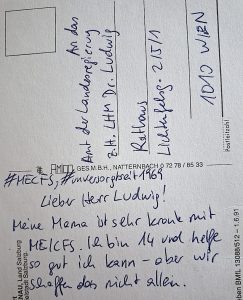 An das
Amt der Landesregierung
z.H. LHM Dr. Ludwig
Rathaus
Lichtenfelsg. 2/5/1
1010 WIEN
Postleitzahl
GES.M.B.H., NATTERNBACH 0 72 78 / 85 33
#MECFS, #unversorgtseit1969
Lieber Herr Ludwig!
Meine Mama ist sehr krank mit
ME/CFS. Ich bin 14 und helfe
so gut ich kann - aber wir
schaffen das nicht allein.